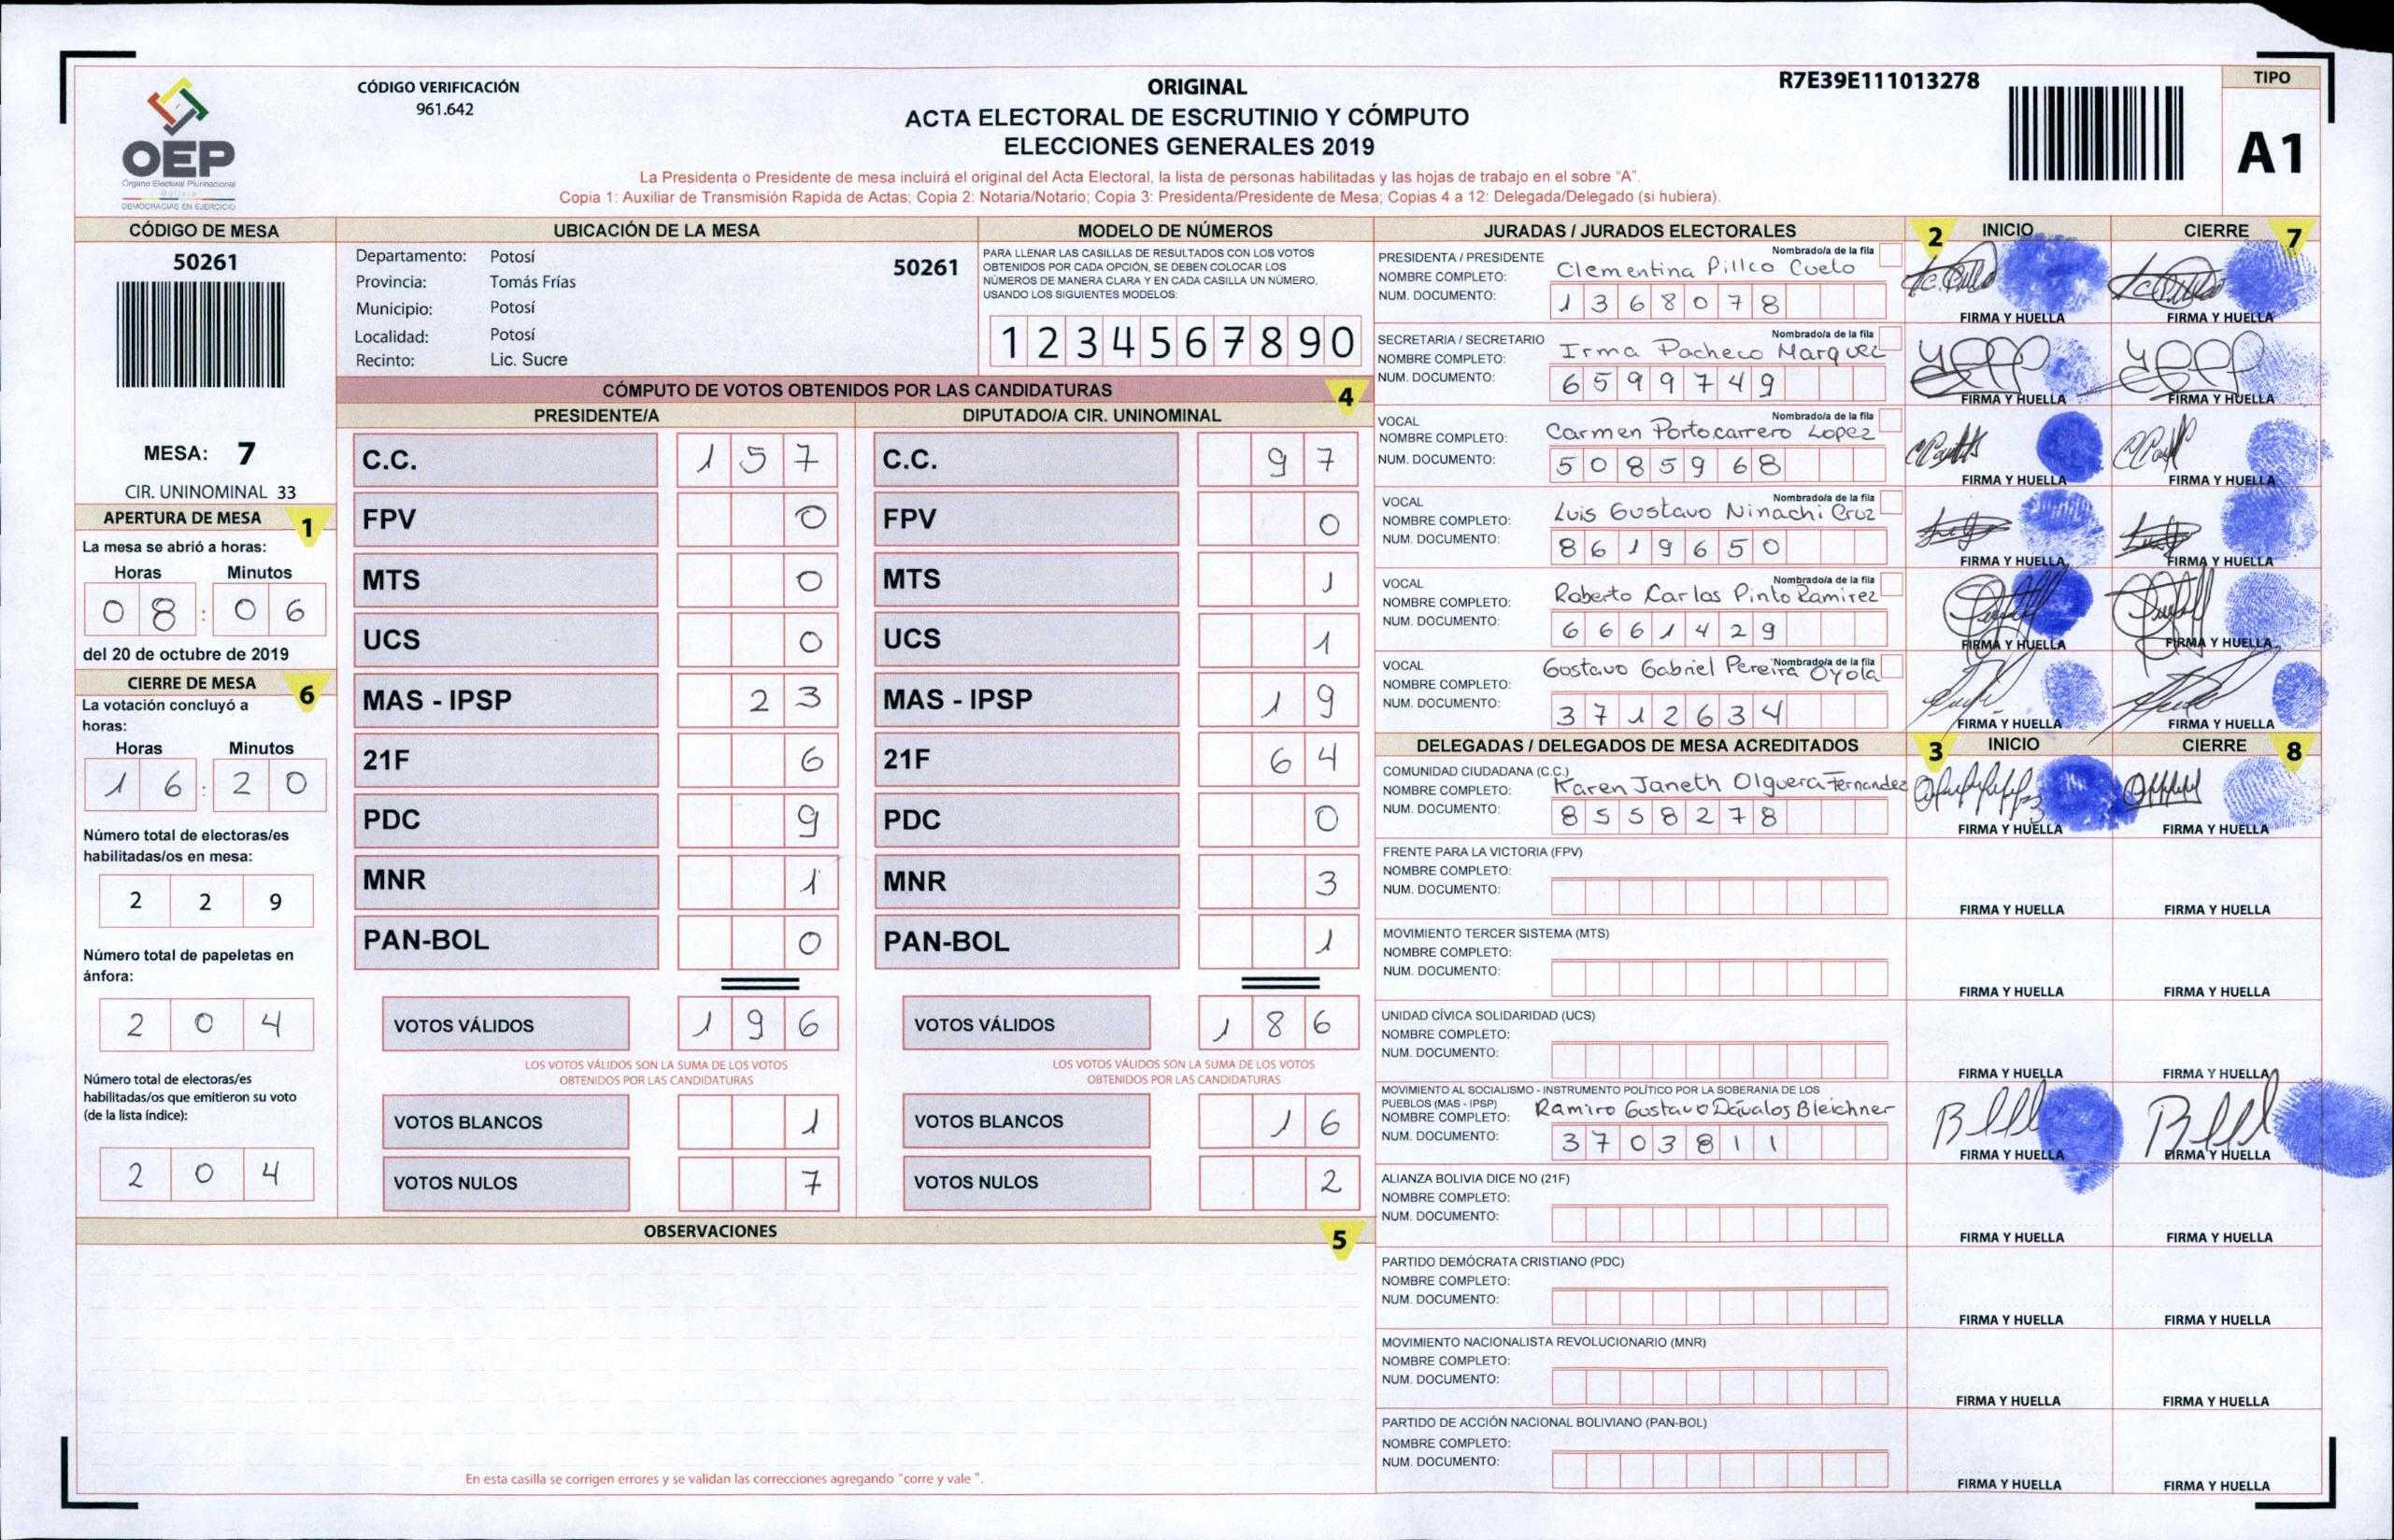 CÓDIGO VERIFICACIÓN
961.642
OEP
Órgano Electoral Plurinacional
Bolivia
DEMOCRACIAS EN EJERCICIO
ORIGINAL
ACTA ELECTORAL DE ESCRUTINIO Y CÓMPUTO
ELECCIONES GENERALES 2019
R7E39E111013278
TIPO
A1
La Presidenta o Presidente de mesa incluirá el original del Acta Electoral, la lista de personas habilitadas y las hojas de trabajo en el sobre "A".
Copia 1: Auxiliar de Transmisión Rapida de Actas; Copia 2: Notaria/Notario; Copia 3: Presidenta/Presidente de Mesa; Copias 4 a 12: Delegada/Delegado (si hubiera).
CÓDIGO DE MESA
50261
MESA: 7
CIR. UNINOMINAL 33
APERTURA DE MESA 1
La mesa se abrió a horas:
Horas Minutos
0 8 : 0 6
del 20 de octubre de 2019
CIERRE DE MESA 6
La votación concluyó a
horas:
Horas Minutos
1 6 : 2 0
Número total de electoras/es
habilitadas/os en mesa:
2 2 9
Número total de papeletas en
ánfora:
2 0 4
Número total de electoras/es
habilitadas/os que emitieron su voto
(de la lista índice):
2 0 4
UBICACIÓN DE LA MESA
Departamento: Potosí 50261
Provincia: Tomás Frías
Municipio: Potosí
Localidad: Potosí
Recinto: Lic. Sucre
MODELO DE NÚMEROS
PARA LLENAR LAS CASILLAS DE RESULTADOS CON LOS VOTOS
OBTENIDOS POR CADA OPCIÓN, SE DEBEN COLOCAR LOS
NÚMEROS DE MANERA CLARA Y EN CADA CASILLA UN NÚMERO,
USANDO LOS SIGUIENTES MODELOS:
1 2 3 4 5 6 7 8 9 0
CÓMPUTO DE VOTOS OBTENIDOS POR LAS CANDIDATURAS 4
PRESIDENTE/A DIPUTADO/A CIR. UNINOMINAL
C.C. 1 5 7 C.C. 9 7
FPV 0 FPV 0
MTS 0 MTS 1
UCS 0 UCS 1
MAS - IPSP 2 3 MAS - IPSP 1 9
21F 6 21F 6 4
PDC 9 PDC 0
MNR 1 MNR 3
PAN-BOL 0 PAN-BOL 1
VOTOS VÁLIDOS 1 9 6 VOTOS VÁLIDOS 1 8 6
LOS VOTOS VÁLIDOS SON LA SUMA DE LOS VOTOS LOS VOTOS VÁLIDOS SON LA SUMA DE LOS VOTOS
OBTENIDOS POR LAS CANDIDATURAS OBTENIDOS POR LAS CANDIDATURAS
VOTOS BLANCOS 1 VOTOS BLANCOS 1 6
VOTOS NULOS 7 VOTOS NULOS 2
OBSERVACIONES 5
En esta casilla se corrigen errores y se validan las correcciones agregando "corre y vale ".
JURADAS / JURADOS ELECTORALES 2 INICIO CIERRE 7
PRESIDENTA / PRESIDENTE Nombrado/a de la fila
NOMBRE COMPLETO: Clementina Pillco Cueto
NUM. DOCUMENTO: 1 3 6 8 0 7 8
FIRMA Y HUELLA FIRMA Y HUELLA
SECRETARIA / SECRETARIO Nombrado/a de la fila
NOMBRE COMPLETO: Irma Pacheco Marquez
NUM. DOCUMENTO: 6 5 9 9 7 4 9
FIRMA Y HUELLA FIRMA Y HUELLA
VOCAL Nombrado/a de la fila
NOMBRE COMPLETO: Carmen Portocarrero Lopez
NUM. DOCUMENTO: 5 0 8 5 9 6 8
FIRMA Y HUELLA FIRMA Y HUELLA
VOCAL Nombrado/a de la fila
NOMBRE COMPLETO: Luis Gustavo Ninachi Cruz
NUM. DOCUMENTO: 8 6 1 9 6 5 0
FIRMA Y HUELLA FIRMA Y HUELLA
VOCAL Nombrado/a de la fila
NOMBRE COMPLETO: Roberto Carlos Pinto Ramirez
NUM. DOCUMENTO: 6 6 6 1 4 2 9
FIRMA Y HUELLA FIRMA Y HUELLA
VOCAL Nombrado/a de la fila
NOMBRE COMPLETO: Gustavo Gabriel Pereira Oyola
NUM. DOCUMENTO: 3 7 1 2 6 3 4
FIRMA Y HUELLA FIRMA Y HUELLA
DELEGADAS / DELEGADOS DE MESA ACREDITADOS 3 INICIO CIERRE 8
COMUNIDAD CIUDADANA (C.C.)
NOMBRE COMPLETO: Karen Janeth Olguera Fernandez
NUM. DOCUMENTO: 8 5 5 8 2 7 8
FIRMA Y HUELLA FIRMA Y HUELLA
FRENTE PARA LA VICTORIA (FPV)
NOMBRE COMPLETO:
NUM. DOCUMENTO:
FIRMA Y HUELLA FIRMA Y HUELLA
MOVIMIENTO TERCER SISTEMA (MTS)
NOMBRE COMPLETO:
NUM. DOCUMENTO:
FIRMA Y HUELLA FIRMA Y HUELLA
UNIDAD CÍVICA SOLIDARIDAD (UCS)
NOMBRE COMPLETO:
NUM. DOCUMENTO:
FIRMA Y HUELLA FIRMA Y HUELLA
MOVIMIENTO AL SOCIALISMO - INSTRUMENTO POLÍTICO POR LA SOBERANIA DE LOS
PUEBLOS (MAS - IPSP)
NOMBRE COMPLETO: Ramiro Gustavo Dávalos Bleichner
NUM. DOCUMENTO: 3 7 0 3 8 1 1
FIRMA Y HUELLA FIRMA Y HUELLA
ALIANZA BOLIVIA DICE NO (21F)
NOMBRE COMPLETO:
NUM. DOCUMENTO:
FIRMA Y HUELLA FIRMA Y HUELLA
PARTIDO DEMÓCRATA CRISTIANO (PDC)
NOMBRE COMPLETO:
NUM. DOCUMENTO:
FIRMA Y HUELLA FIRMA Y HUELLA
MOVIMIENTO NACIONALISTA REVOLUCIONARIO (MNR)
NOMBRE COMPLETO:
NUM. DOCUMENTO:
FIRMA Y HUELLA FIRMA Y HUELLA
PARTIDO DE ACCIÓN NACIONAL BOLIVIANO (PAN-BOL)
NOMBRE COMPLETO:
NUM. DOCUMENTO:
FIRMA Y HUELLA FIRMA Y HUELLA